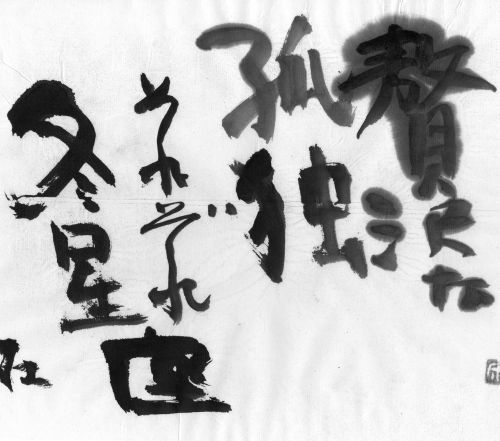 贅沢な
孤独
それぞれ
冬星座